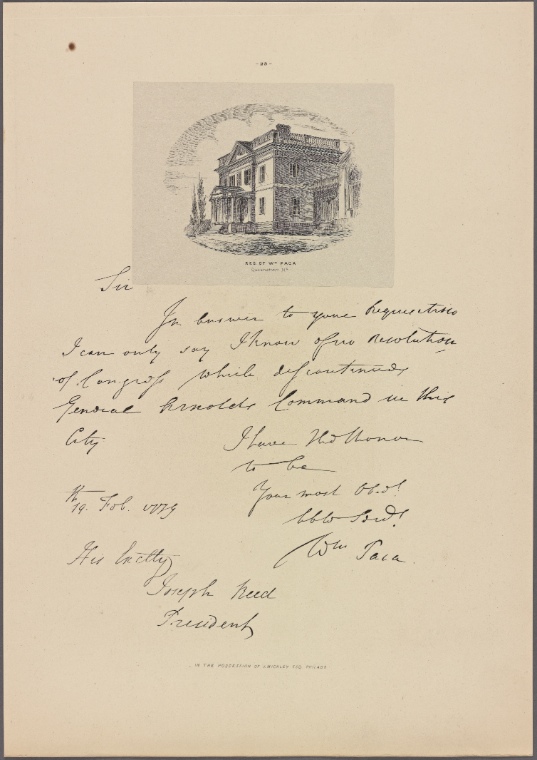 RES. OF Wm PACA
Sir
In answer to your Requisition
I can only say I know of no Resolution
of Congress which discontinues
General Arnolds Command in this
City
I have the Honor
to be
Your most Obdt
hble Servt
Wm Paca
th
19. Feb. 1779
His Excelly
Joseph Reed
President
IN THE POSSESSION OF ESQ.